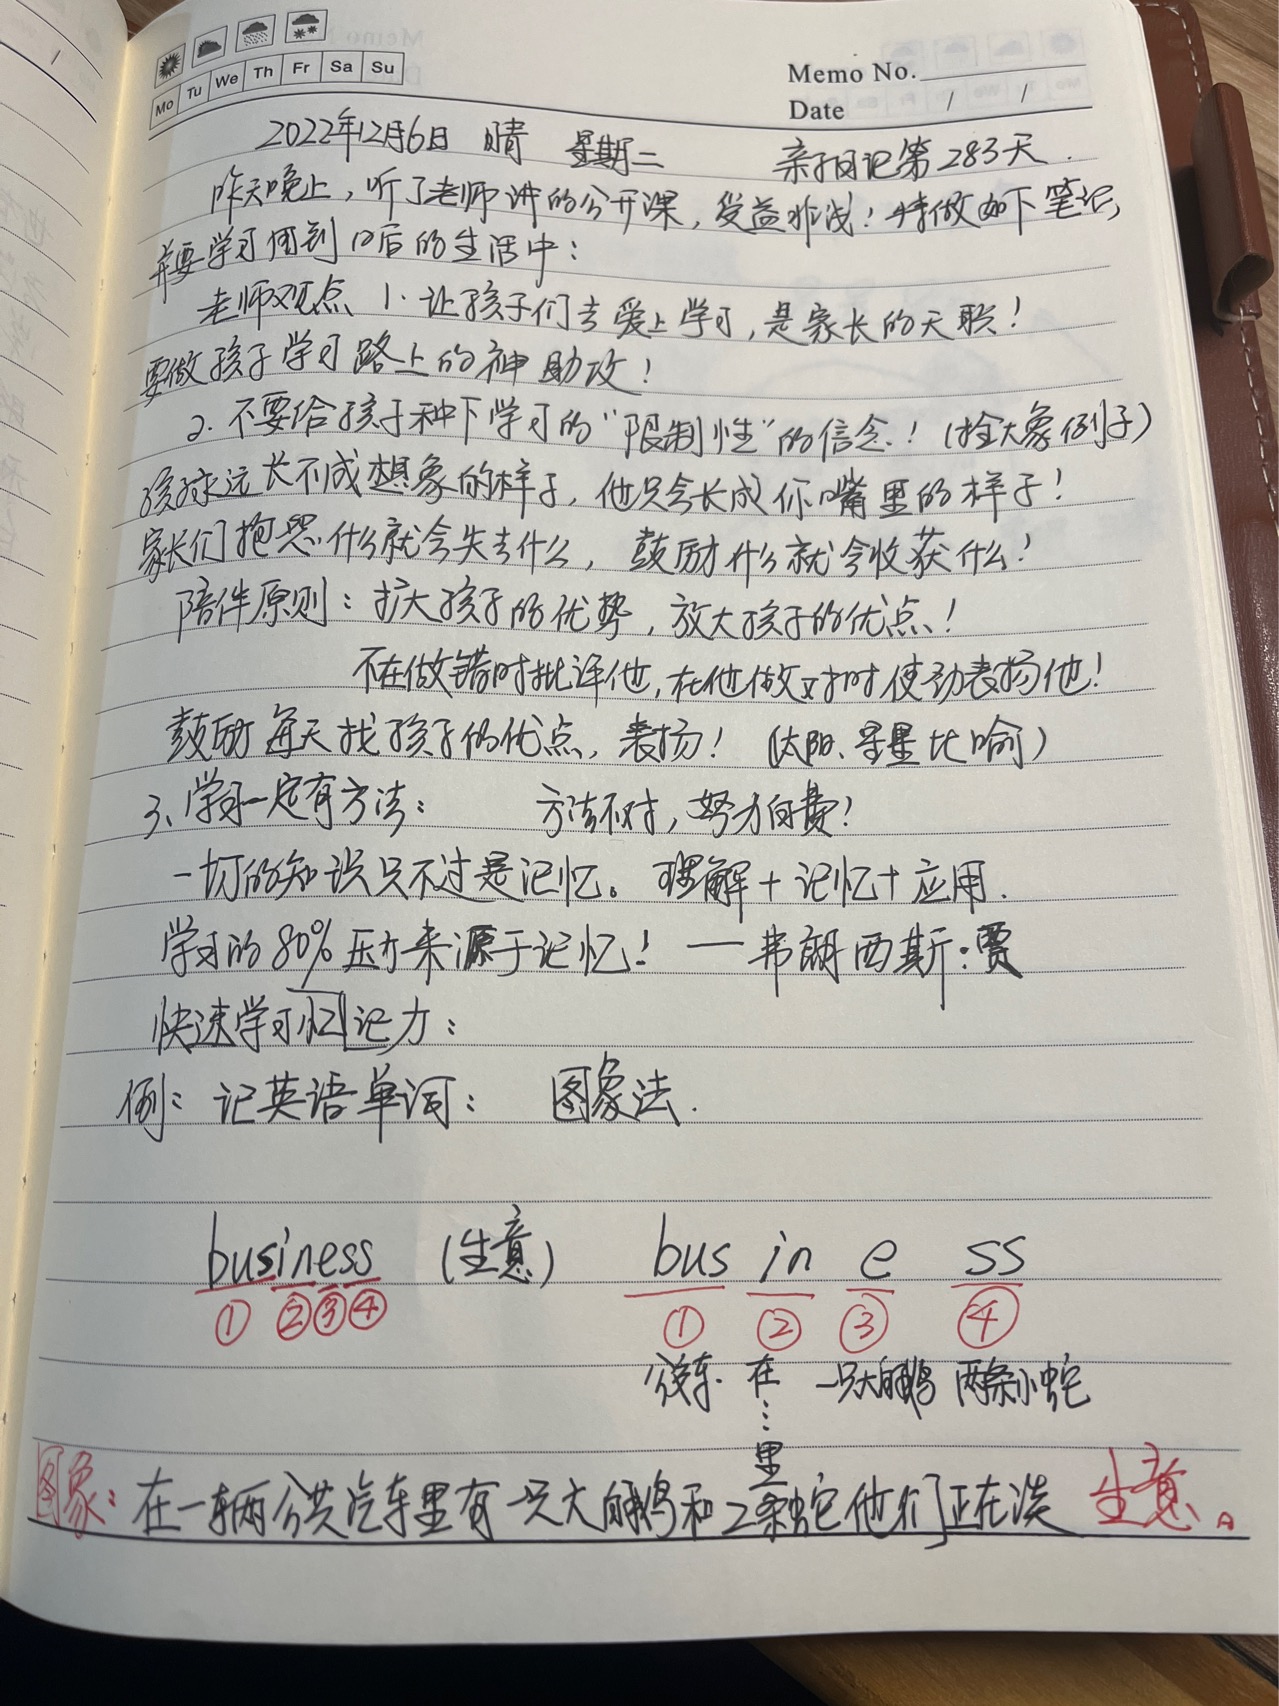 Mo Tu We Th Fr Sa Su
Memo No.
Date / /
2022年12月6日 晴 星期二 亲子日记第283天.
昨天晚上，听了老师讲的公开课，受益非浅！特做如下笔记，
并要学习用到日后的生活中：
老师观点 1. 让孩子们去爱上学习，是家长的天职！
要做孩子学习路上的神助攻！
2. 不要给孩子种下学习的“限制性”的信念！（拴大象例子）
孩子永远长不成想象的样子，他只会长成你嘴里的样子！
家长们抱怨什么就会失去什么，鼓励什么就会收获什么！
陪伴原则：扩大孩子的优势，放大孩子的优点！
不在做错时批评他，在他做对时使劲表扬他！
鼓励每天找孩子的优点，表扬！（太阳、星星比喻）
3、学习一定有方法： 方法不对，努力白费！
一切的知识只不过是记忆。理解＋记忆＋应用.
学习的80%压力来源于记忆！ —弗朗西斯·贾
快速学习忆记力：
例：记英语单词： 图象法.
business （生意） bus in e ss
① ② ③ ④ ① ② ③ ④
公交车. 在…里 一只大白鹅 两条小蛇
图象：在一辆公共汽车里有一只大白鹅和2条蛇他们正在谈 生意。